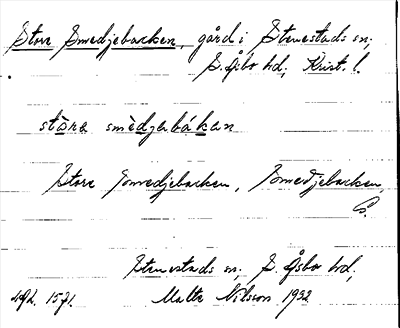 Store Smedjebacken, gård i Stenestads sn,
S. Åsbo hd, Krist. l.
stòra smèdjabákan
Store Smedjebacken, Smedjebacken,
Stenestads sn, S. Åsbo hd,
Malte Nilsson 1932